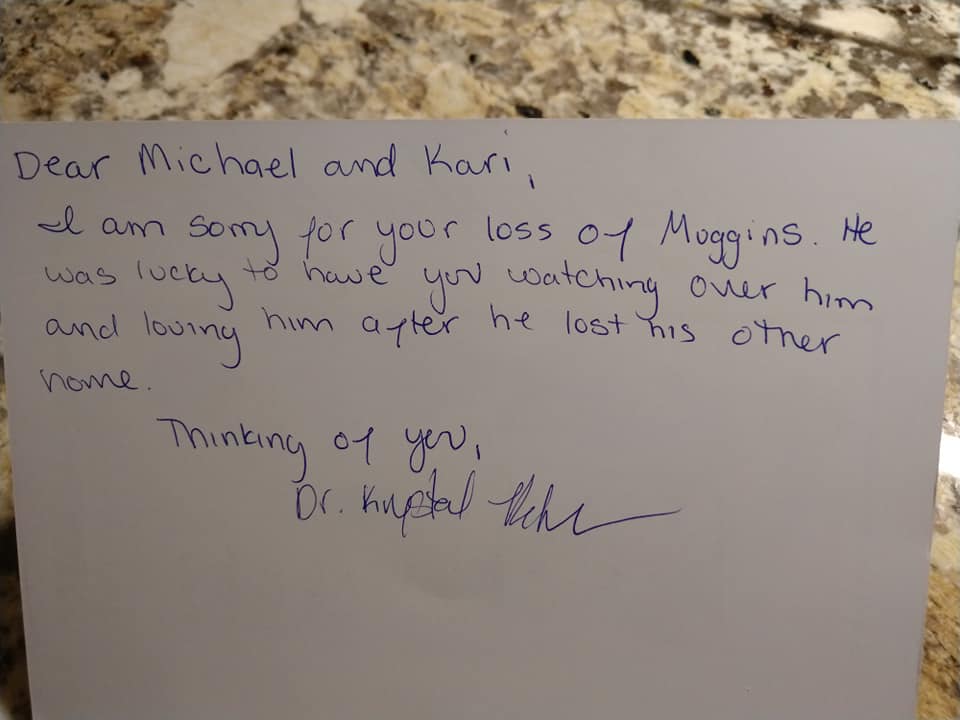 Dear Michael and Kari,
I am sorry for your loss of Muggins. He
was lucky to have you watching over him
and loving him after he lost his other
home.
Thinking of you,
Dr. Krystal